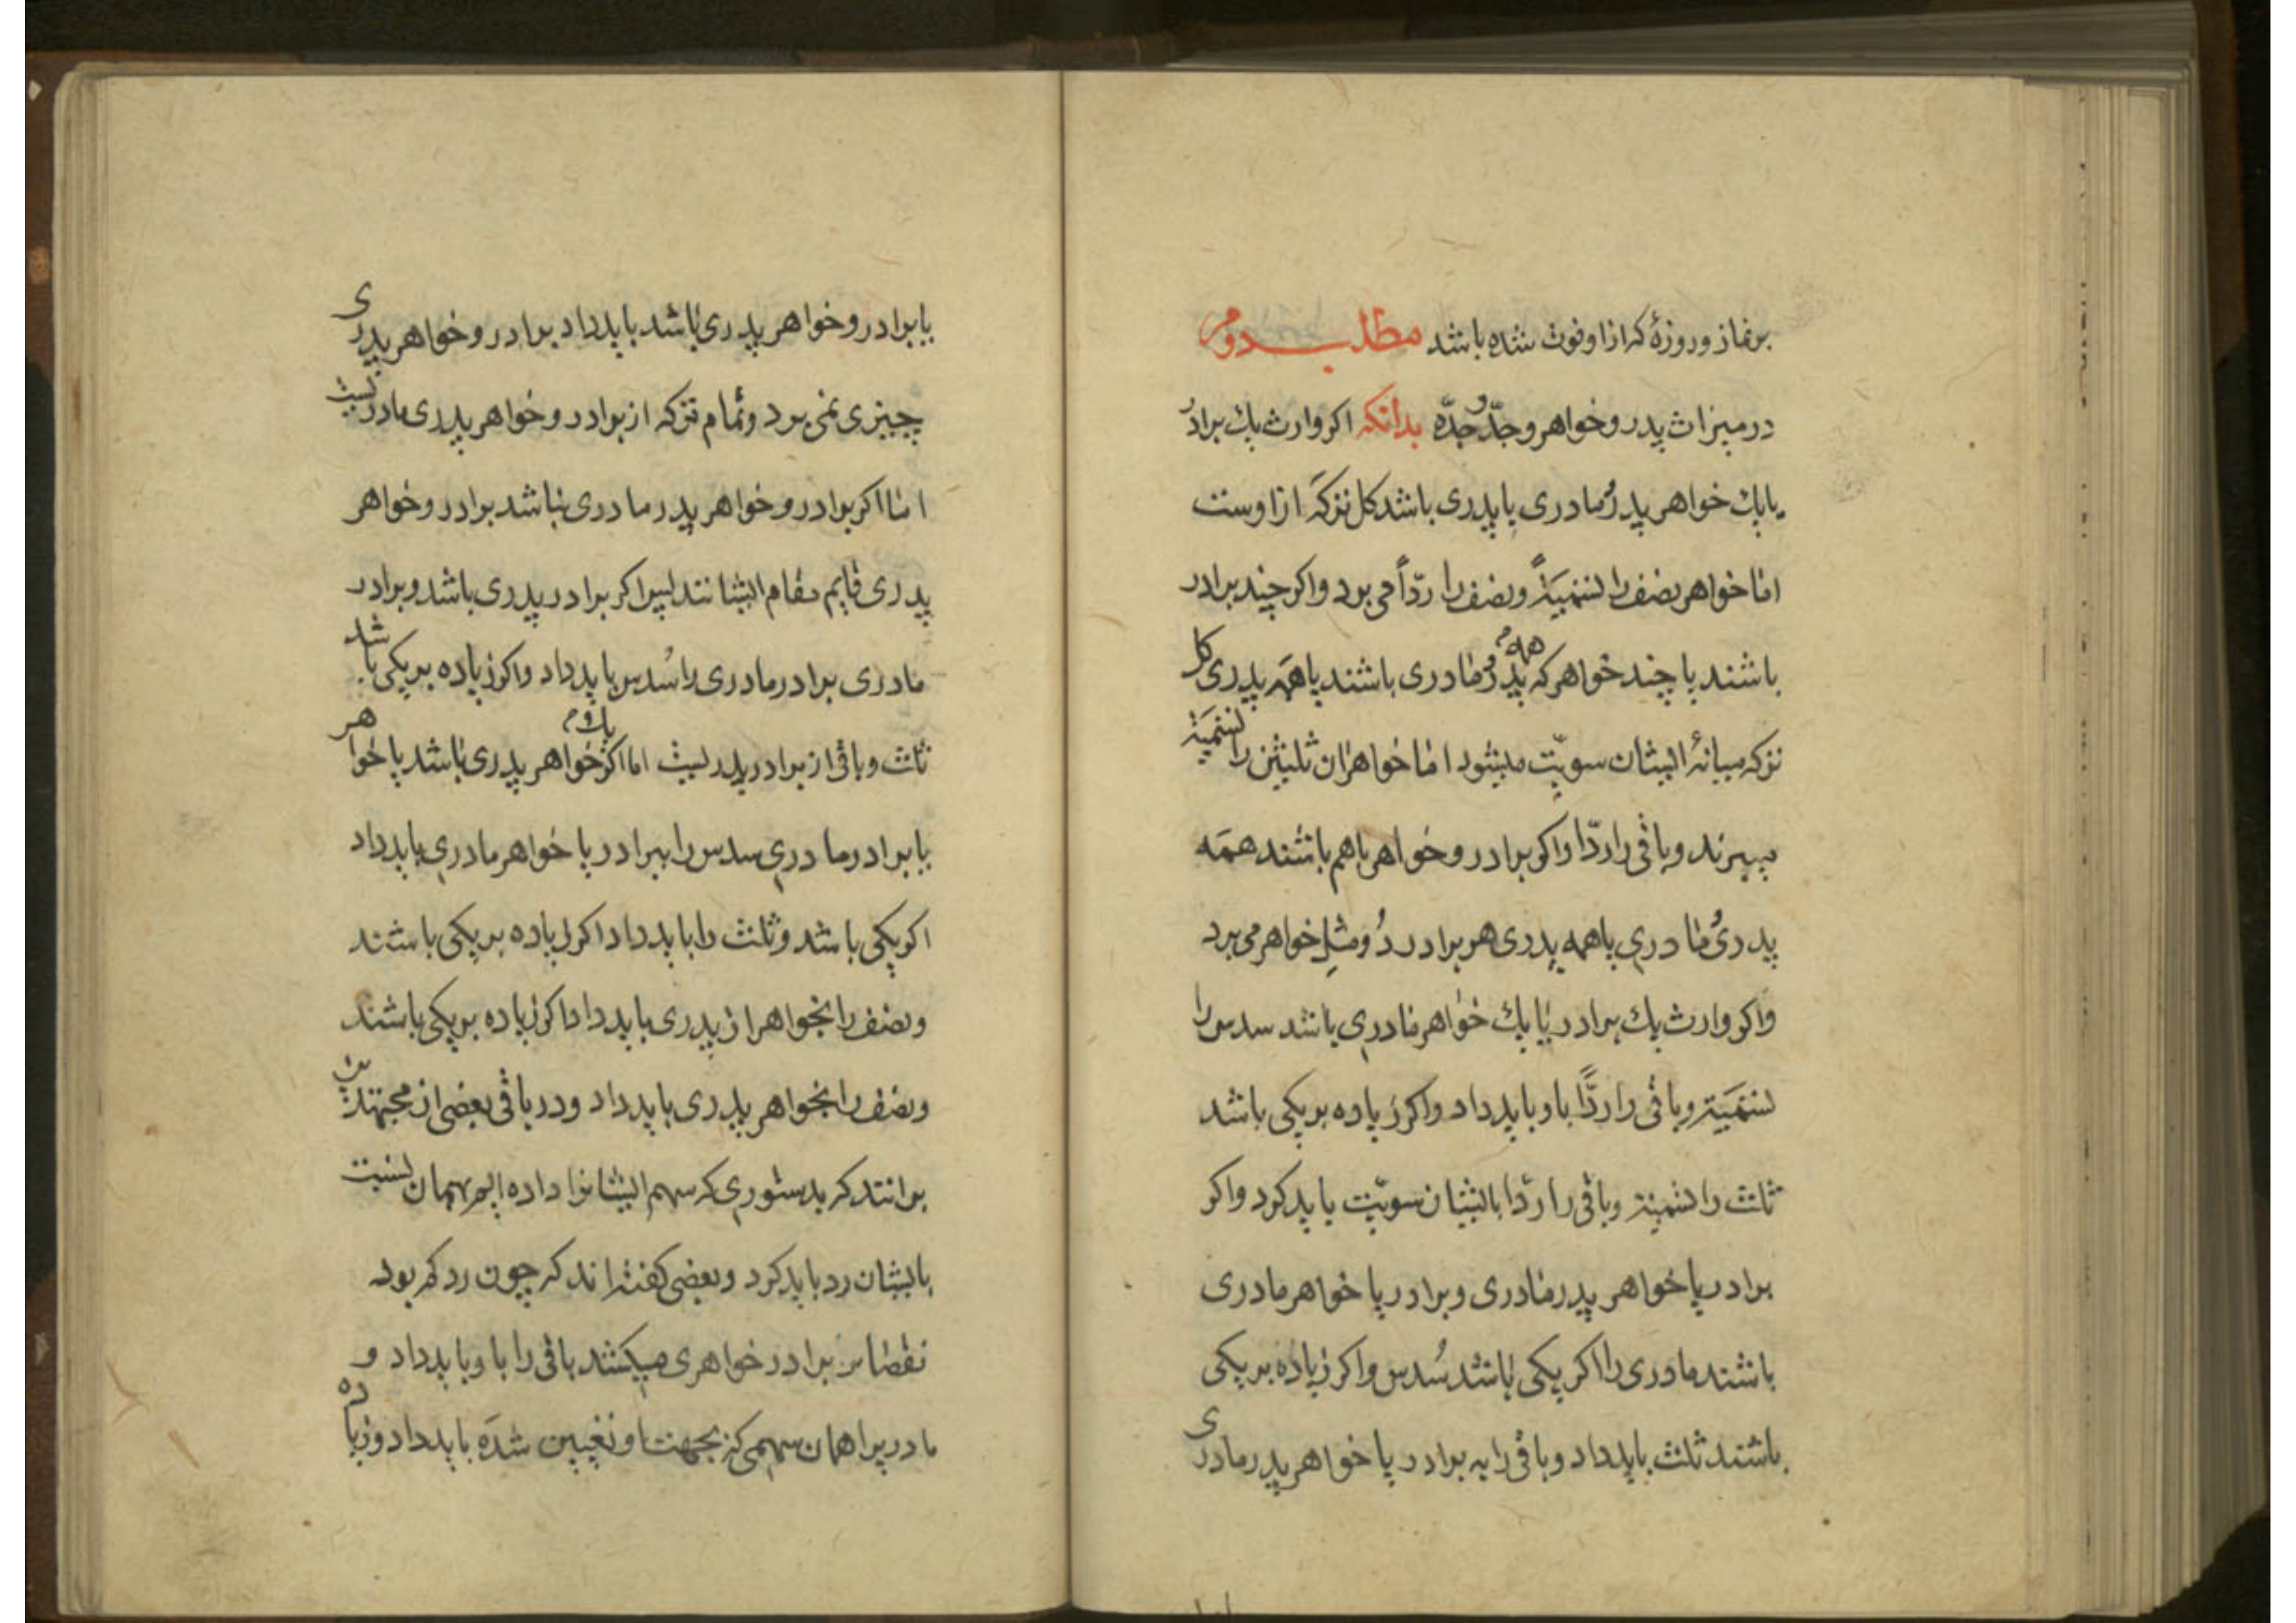 بر نماز و روزهٔ که از او فوت شده باشد مطلب دوم
در میراث پدر و خواهر و جدّ و جدّه بدانکه اکر وارث یك برادر
یا یك خواهر پدر و مادری یا پدری باشد کل ترکه از اوست
امّا خواهر نصف را تسمیةً و نصف را ردّاً می برد و اکر چند برادر
باشند یا چند خواهر که همه پدر و مادری باشند یا همه پدری کل
ترکه میانهٔ ایشان سویّت میشود امّا خواهران ثلیثین را تسمیَة
میبرند و باقی را ردّا و اکر برادر و خواهر باهم باشند همَه
پدری مادری یا همه پدری هر برادر دُو مثلِ خواهر می برد
و اکر وارث یك برادر یا یك خواهر مادری باشد سدس را
تسمَیة و باقی را ردًّا باو باید داد و اکر زیاده بر یکی باشد
ثلث را تسمیة و باقی را ردّا بایشان سویّت باید کرد و اکر
برادر یا خواهر پدر مادری و برادر یا خواهر مادری
باشند مادری را اکر یکی باشد سُدس و اکر زیاده بر یکی
باشند ثلث باید داد و باقی را به برادر یا خواهر پدر مادری
با برادر و خواهر پدری باشد باید داد برادر و خواهر پدری
چیزی نمی برد و تمام ترکه از برادر و خواهر پدری مادریست
امّا اکر برادر و خواهر پدر مادری نباشد برادر و خواهر
پدری قایم مقام ایشانند پس اکر برادر پدری باشد و برادر
مادری برادر مادری را سُدس باید داد و اکر زیاده بر یکی باشد
ثلث و باقی از برادر پدریست امّا اکر یك خواهر پدری باشد با خواهر
یا برادر مادری سدس را ببرادر یا خواهر مادری باید داد
اکر یکی باشد و ثلث را باید داد اکر زیاده بر یکی باشند
و نصف را بخواهر از پدری باید داد اکر زیاده بر یکی باشند
و نصف را بخواهر پدری باید داد و در باقی بعضی از مجتهدین
برانند که بدستوری که سهم ایشانرا داده ایم بهمان نسبت
بایشان رد باید کرد و بعضی کفته اند که چون رد که بود
نقصا بر برادر خواهری میکشد باقی را باو باید داد و
مادر یرا همان سهمی که بجهت او تعیین شدَه باید داد و زیاده